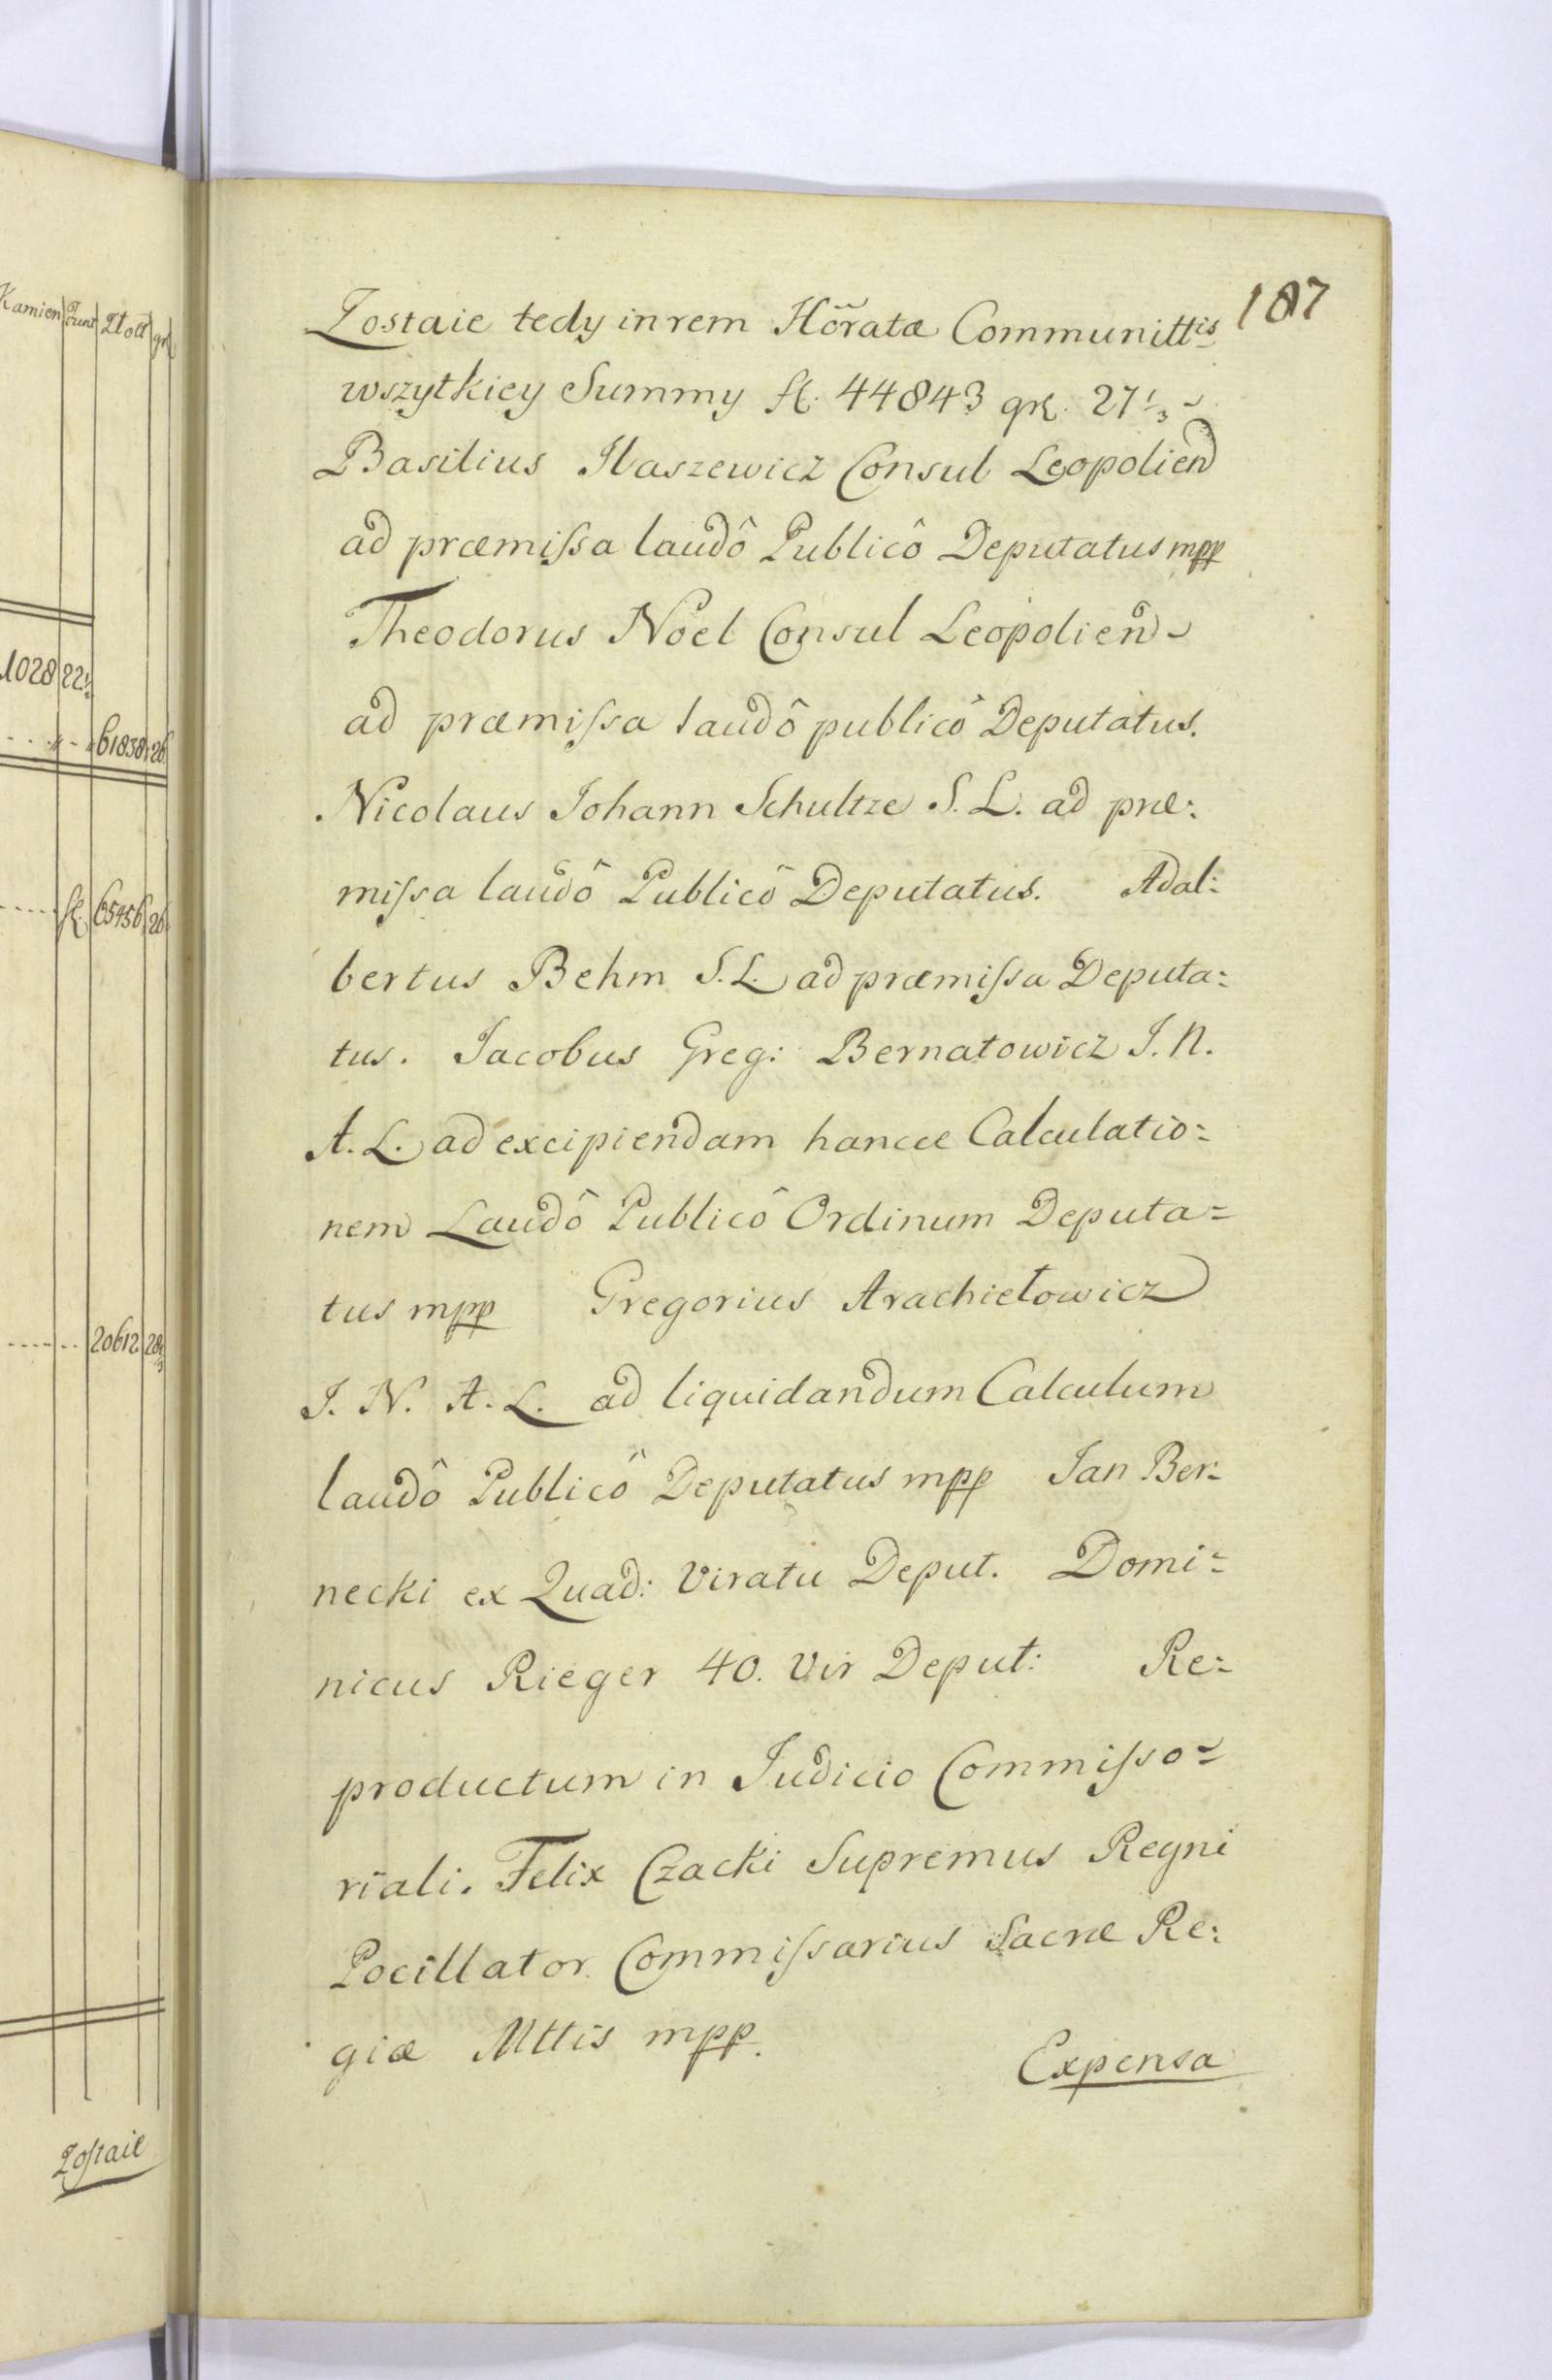 Kamien Funt Złoty gr
1028 22½
61838 26
fl. 65456 26
20612 28⅔
Zostaie
187
Zostaie tedy in rem Hõratæ Communittis
wszytkiey Summy fl. 44843 gr. 27⅓
Basilius Ilaszewicz Consul Leopolien̄
ad præmissa laudô Publicô Deputatus mpp
Theodorus Noel Consul Leopolien̄
ad præmissa laudô publicô Deputatus.
Nicolaus Johann Schultze S. L. ad præ:
missa laudô Publicô Deputatus. Adal:
bertus Behm S. L. ad præmissa Deputa:
tus. Jacobus Greg: Bernatowicz J. N.
A. L. ad excipiendam hancce Calculatio:
nem Laudô Publicô Ordinum Deputa=
tus mpp Gregorius Arachiełowicz
J. N. A. L. ad liquidandum Calculum
laudô Publicô Deputatus mpp Jan Ber:
necki ex Quad: Viratu Deput. Domi:
nicus Rieger 40. Vir Deput: Re:
productum in Judicio Commisso=
riali. Felix Czacki Supremus Regni
Pocillator Commissarius Sacræ Re:
giæ Mttis mpp.
Expensa